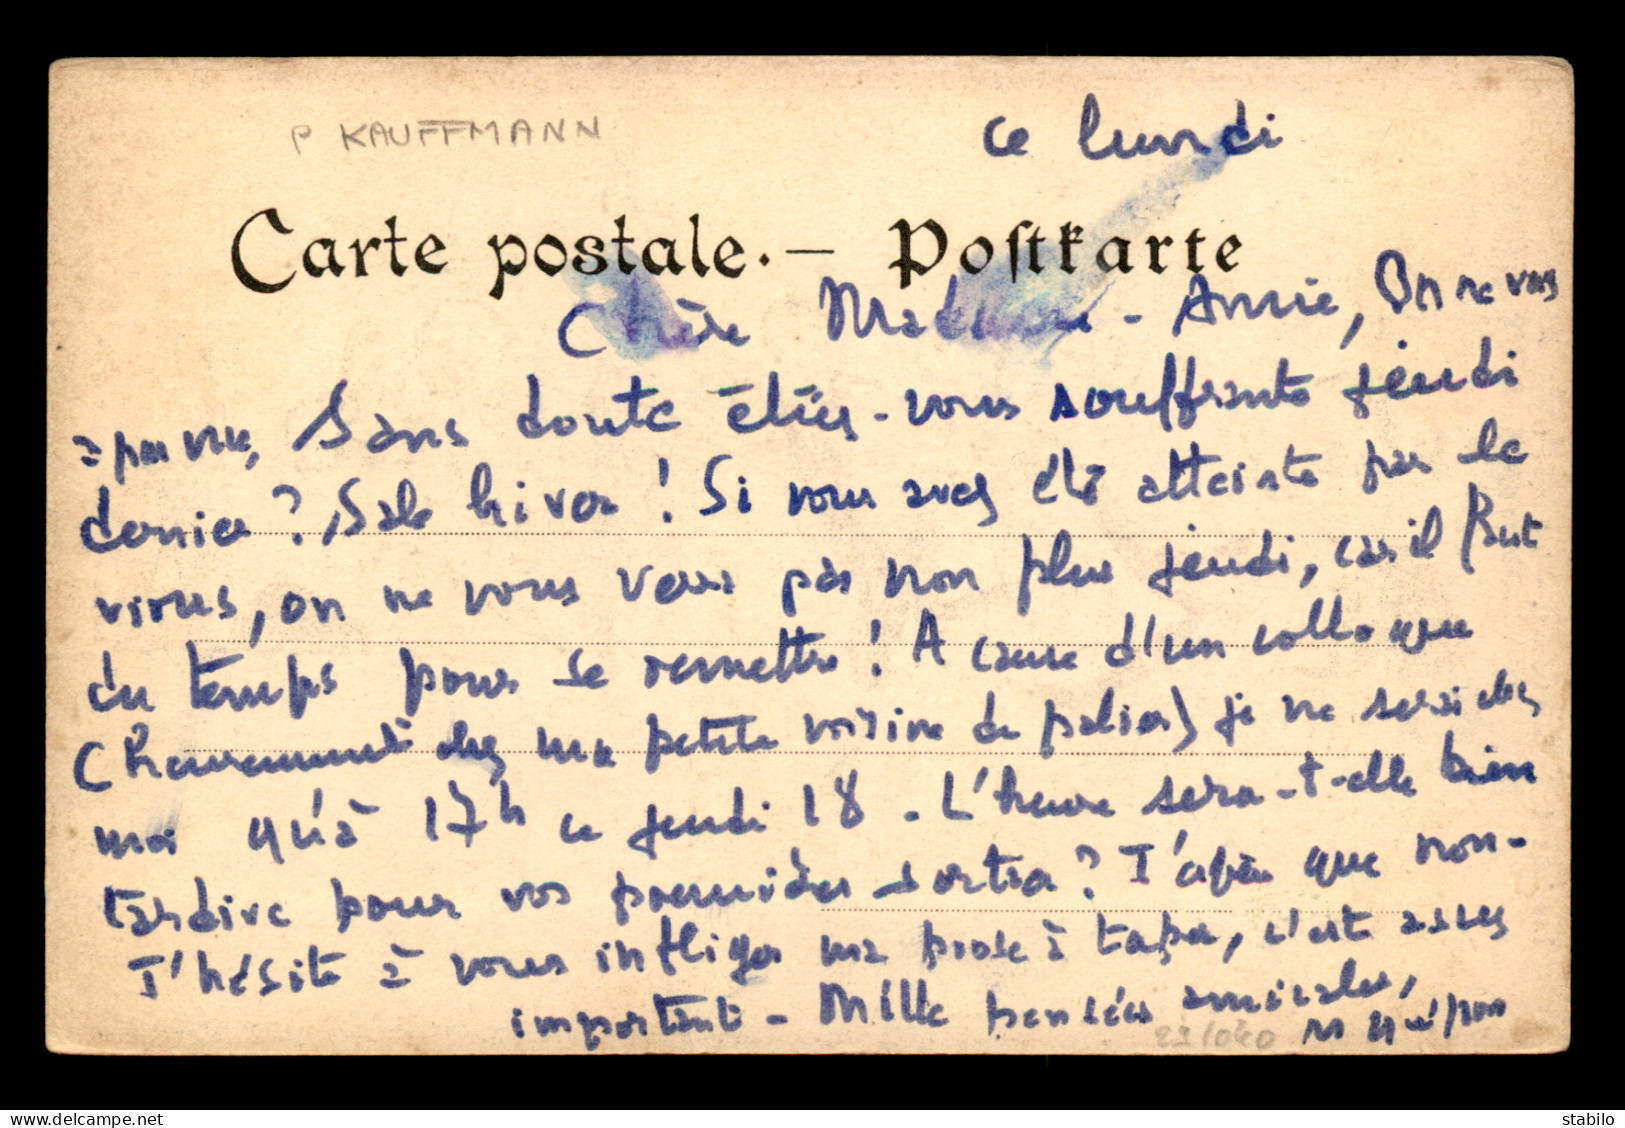 P KAUFFMANN
ce lundi
Carte postale. — Poſtkarte
Chère Madeleine-Annie, On ne vous
a pas vue, Sans doute étiez-vous souffrante jeudi
dernier ? Sale hiver ! Si vous avez été atteinte par le
virus, on ne vous verra pas non plus jeudi, car il faut
du temps pour se remettre ! A cause d'un colloque
(heureusement chez ma petite voisine de palier) je ne serai chez
moi qu'à 17h ce jeudi 18. L'heure sera-t-elle bien
tardive pour vos premières sorties ? J'espère que non-
J'hésite à vous infliger ma prose à taper, c'est assez
important - Mille pensées amicales,
29/040